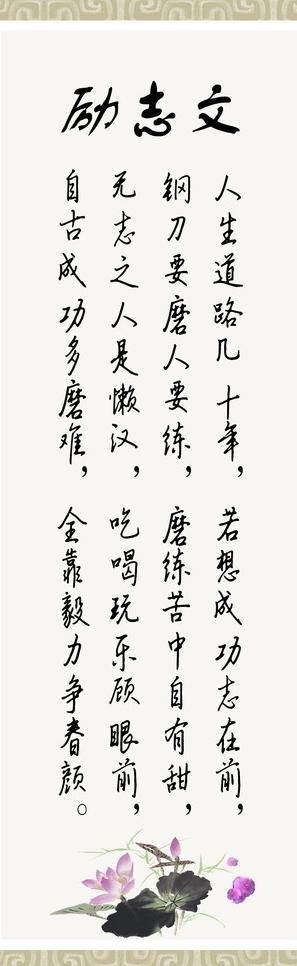 励志文
人生道路几十年，若想成功志在前，
钢刀要磨人要练，磨练苦中自有甜，
无志之人是懒汉，吃喝玩乐顾眼前，
自古成功多磨难，全靠毅力争春颜。